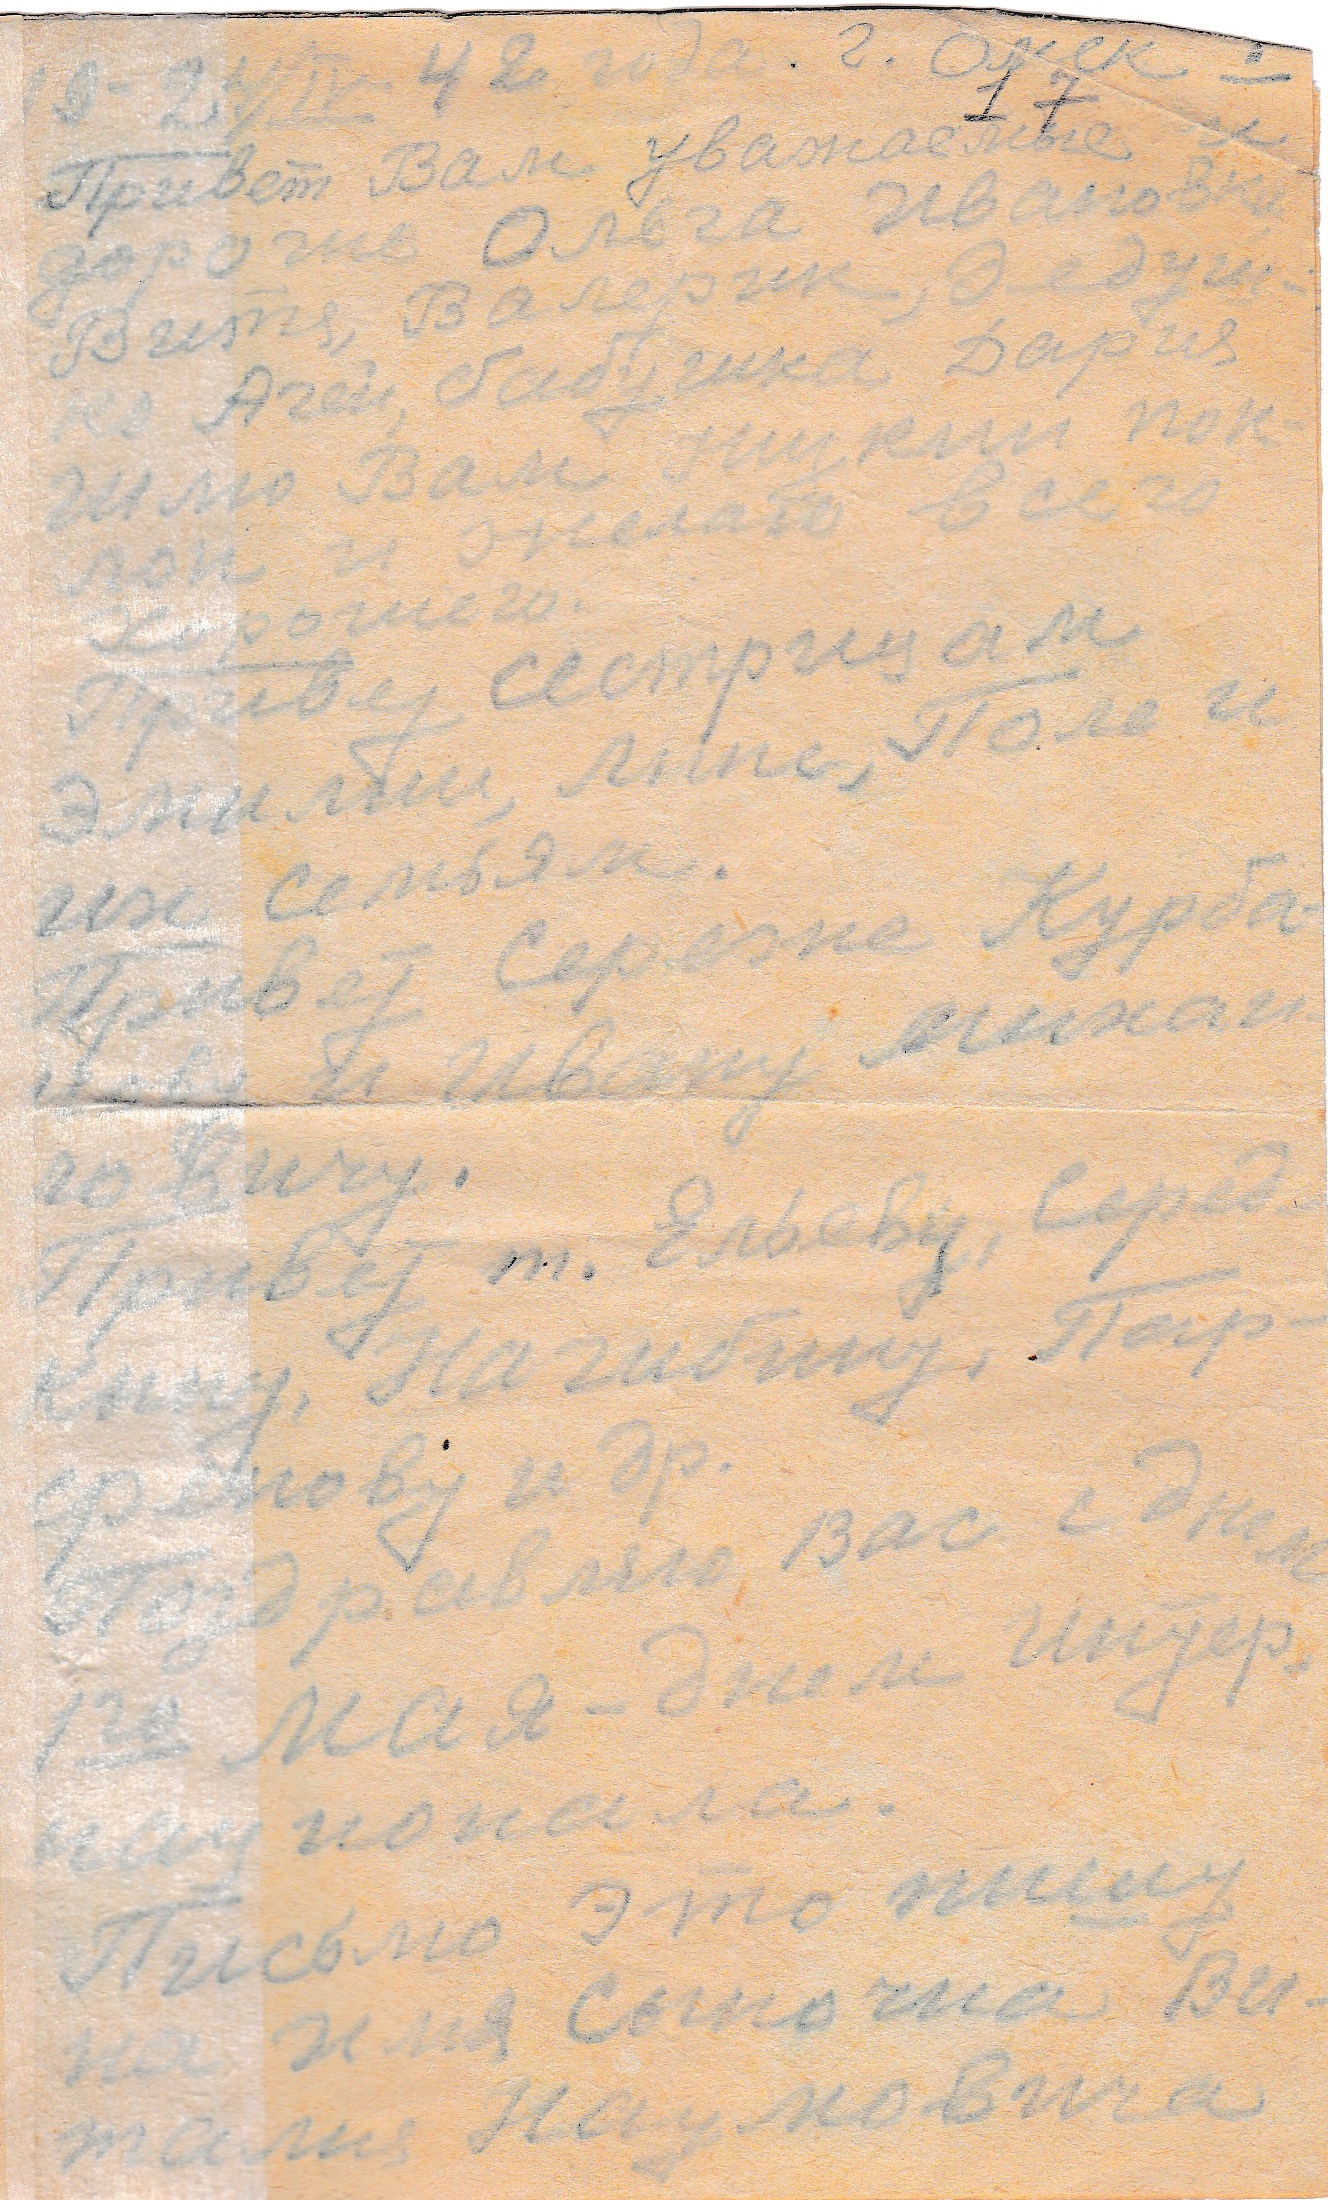 42 года. г. Омск
17
Привет Вам уважаемые и
дорогие Ольга Ивановна
Витя, Валерик, Дедуш-
ка Агей, бабушка Дария
шлю Вам низкий пок-
лон и желаю всего
хорошего.
Привет сестрицам
Эмилии, Липе, Поле и
их семьям.
Привет Сереже Курба-
и Ивану михаи-
ловичу.
Привет т. Ельеву, Серед-
кину, Нагибину, Пар-
фенову и др.
Поздравляю Вас с днем
1го Мая - днем интер.
национала.
Письмо это пишу
на имя сыночка Ви-
талия Наумовича